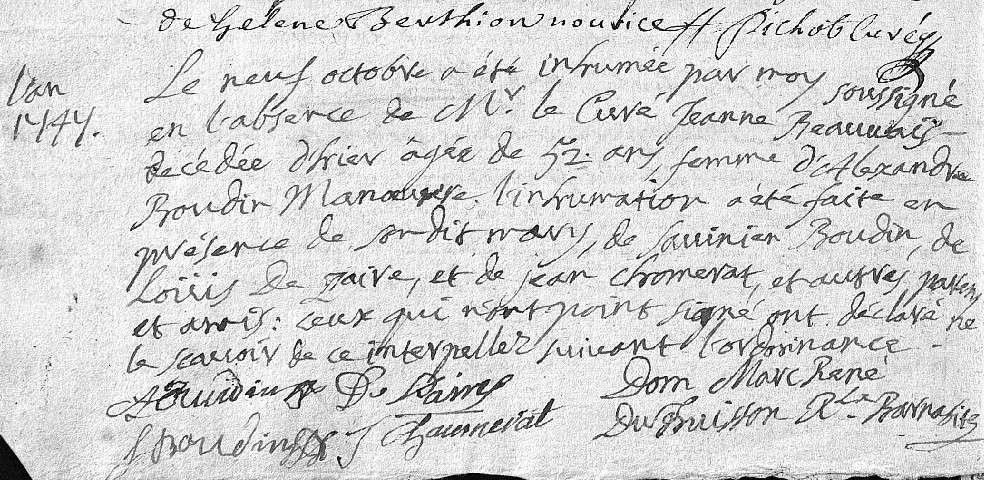 de helene Berthion nourice // Pichot Curé
Lan
1747.
Le neuf octobre a été inhumée par moy soussigné
en l'absence de Mr. le Curé Jeanne Beauvais
decédée d'hier âgée de 52. ans, femme d'Alexandre
Boudin Manoeuvre. l'inhumation a été faite en
présence de son dit mary, de Savinien Boudin, de
Loüis De Zaive, et de jean Chomerat, et autres parens
et amis: ceux qui n'ont point signé ont déclaré ne
le scavoir de ce interpellez suivant l'ordonnance.
ABoudin De Zaives Dom Marc René
S Boudin J Chaumerat Du Buisson Barnabite